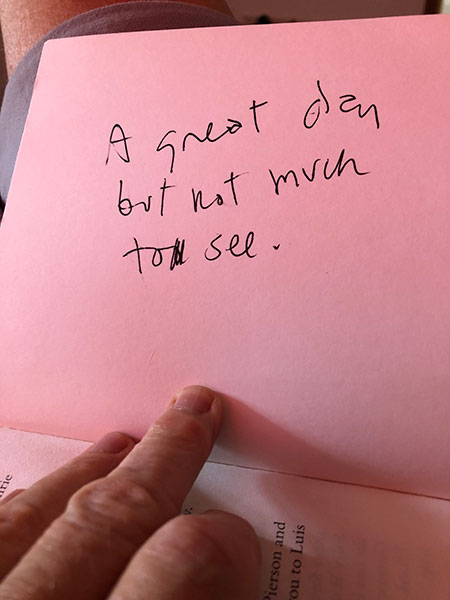 A great day
but not much
to see.
Pierson and
ou to Luis